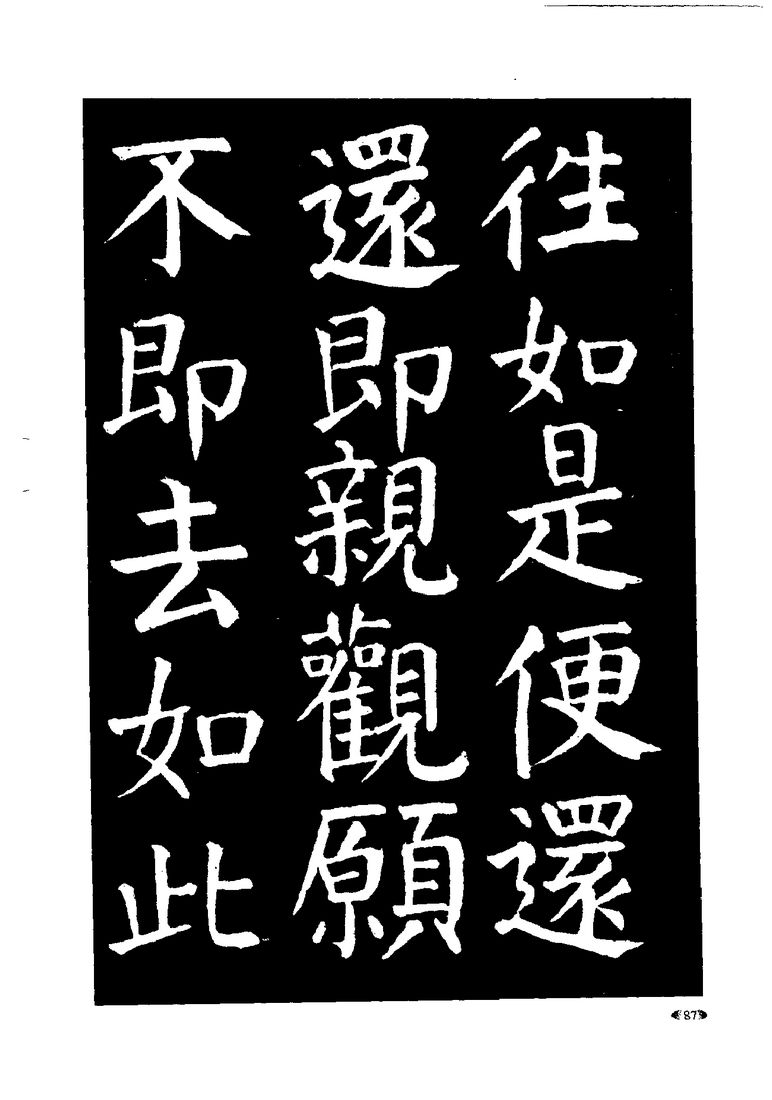 徃如是便還
還即親觀願
不即去如此
87